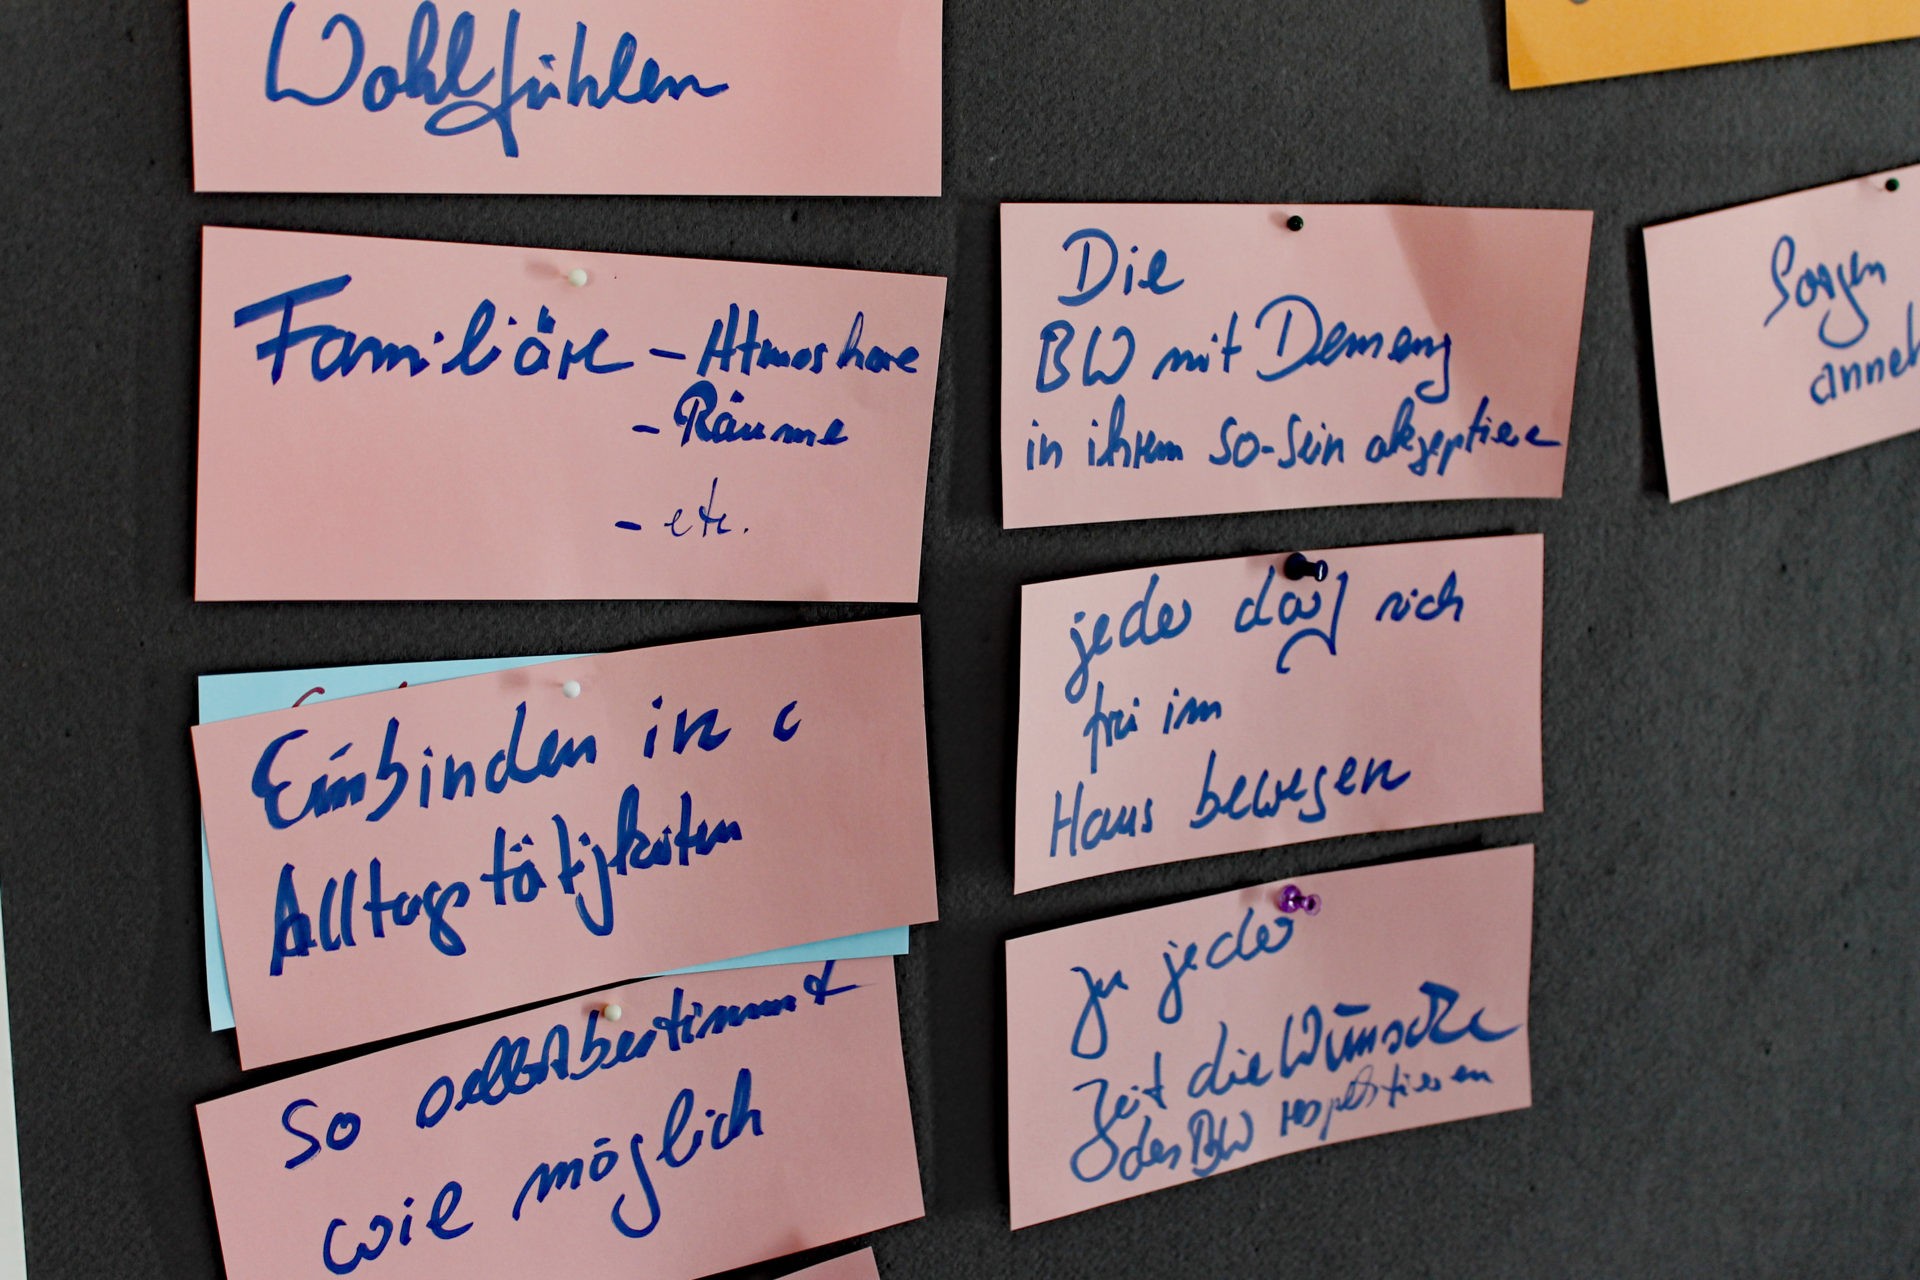 Wohlfühlen
Familiäre - Atmoshare
- Räume
- etc.
Einbinden in d
Alltagstätigkeiten
So selbstbestimmt
wie möglich
Die
BW mit Demenz
in ihrem So-Sein akzeptiere
jeder darf sich
frei im
Haus bewegen
Zu jeder
Zeit die Wünsche
des BW respektieren
Sorgen
anneh